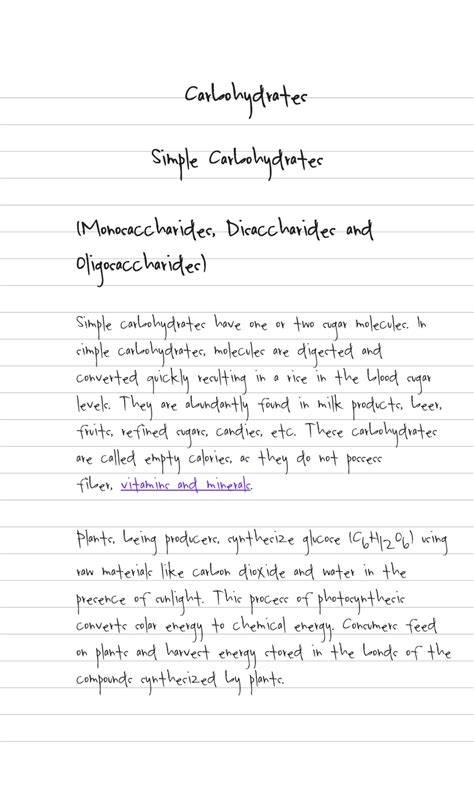 Carbohydrates
Simple Carbohydrates
(Monosaccharides, Disaccharides and
Oligosaccharides)
Simple carbohydrates have one or two sugar molecules. In
simple carbohydrates, molecules are digested and
converted quickly resulting in a rise in the blood sugar
levels. They are abundantly found in milk products, beer,
fruits, refined sugars, candies, etc. These carbohydrates
are called empty calories, as they do not possess
fiber, vitamins and minerals.
Plants, being producers, synthesize glucose (C6H12O6) using
raw materials like carbon dioxide and water in the
presence of sunlight. This process of photosynthesis
converts solar energy to chemical energy. Consumers feed
on plants and harvest energy stored in the bonds of the
compounds synthesized by plants.